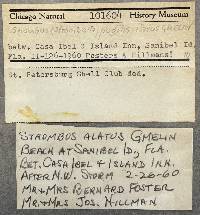 Chicago Natural 101604 History Museum
Strombus
betw. Casa Ibel & Island Inn, Sanibel Id.
Fla. II-26-1960 Fosters & Hillmans!
St. Petersburg Shell Club don.
STROMBUS ALATUS GMELIN
BEACH AT SANIBEL ID, FLA.
BET. CASA IBEL & ISLAND INN.
AFTER N.W. STORM 2-26-60
MR & MRS BERNARD FOSTER
MR & MRS JOS. HILLMAN